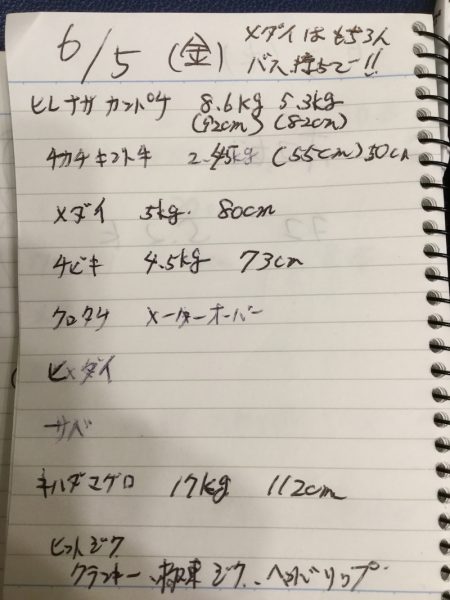 6/5 (金) メダイはもちろん
バス持ちで!!
ヒレナガカンパチ 8.6kg 5.3kg
(92cm) (82cm)
チカメキントキ 2.45kg (55cm) 50cm
メダイ 5kg. 80cm
チビキ 4.5kg 73cm
クロタチ メーターオーバー
ヒメダイ
サバ
キハダマグロ 17kg 112cm
ヒットジグ
クランキー、極東ジグ、ヘルバリップ